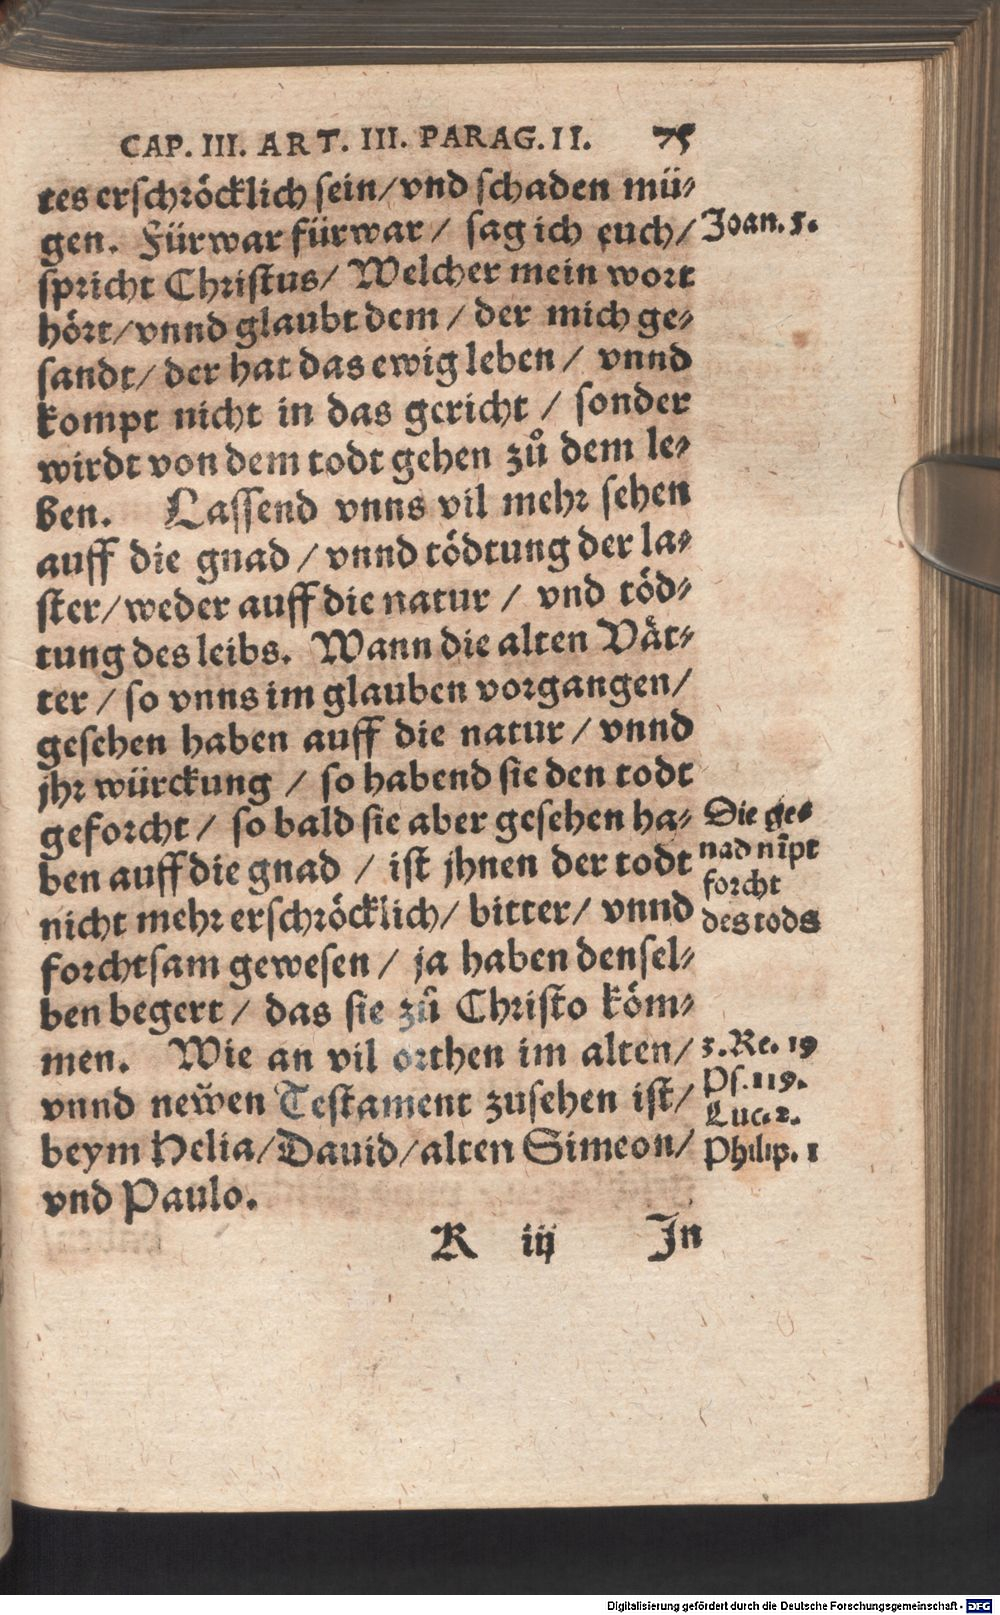 CAP. III. ART. III. PARAG. II. 75
tes erschröcklich sein/vnd schaden mü-
gen. Fürwar fürwar / sag ich euch/
Joan. 5.
spricht Christus/ Welcher mein wort
hört/vnnd glaubt dem / der mich ge-
sandt/ der hat das ewig leben / vnnd
kompt nicht in das gericht / sonder
wirdt von dem todt gehen zů dem le-
ben. Lassend vnns vil mehr sehen
auff die gnad / vnnd tödtung der la-
ster/weder auff die natur / vnd töd-
tung des leibs. Wann die alten Vät-
ter / so vnns im glauben vorgangen/
gesehen haben auff die natur / vnnd
jhr würckung / so habend sie den todt
geforcht / so bald sie aber gesehen ha-
ben auff die gnad / ist jhnen der todt
nicht mehr erschröcklich/ bitter/ vnnd
forchtsam gewesen / ja haben densel-
ben begert / das sie zů Christo köm-
men. Wie an vil orthen im alten/
vnnd neẅen Testament zusehen ist/
beym Helia/Dauid/alten Simeon/
vnd Paulo.
Die ge-
nad nĩpt
forcht
des tods
3. Re. 19
Ps. 119.
Luc. 2.
Philip. 1
K iij In
Digitalisierung gefördert durch die Deutsche Forschungsgemeinschaft - DFG